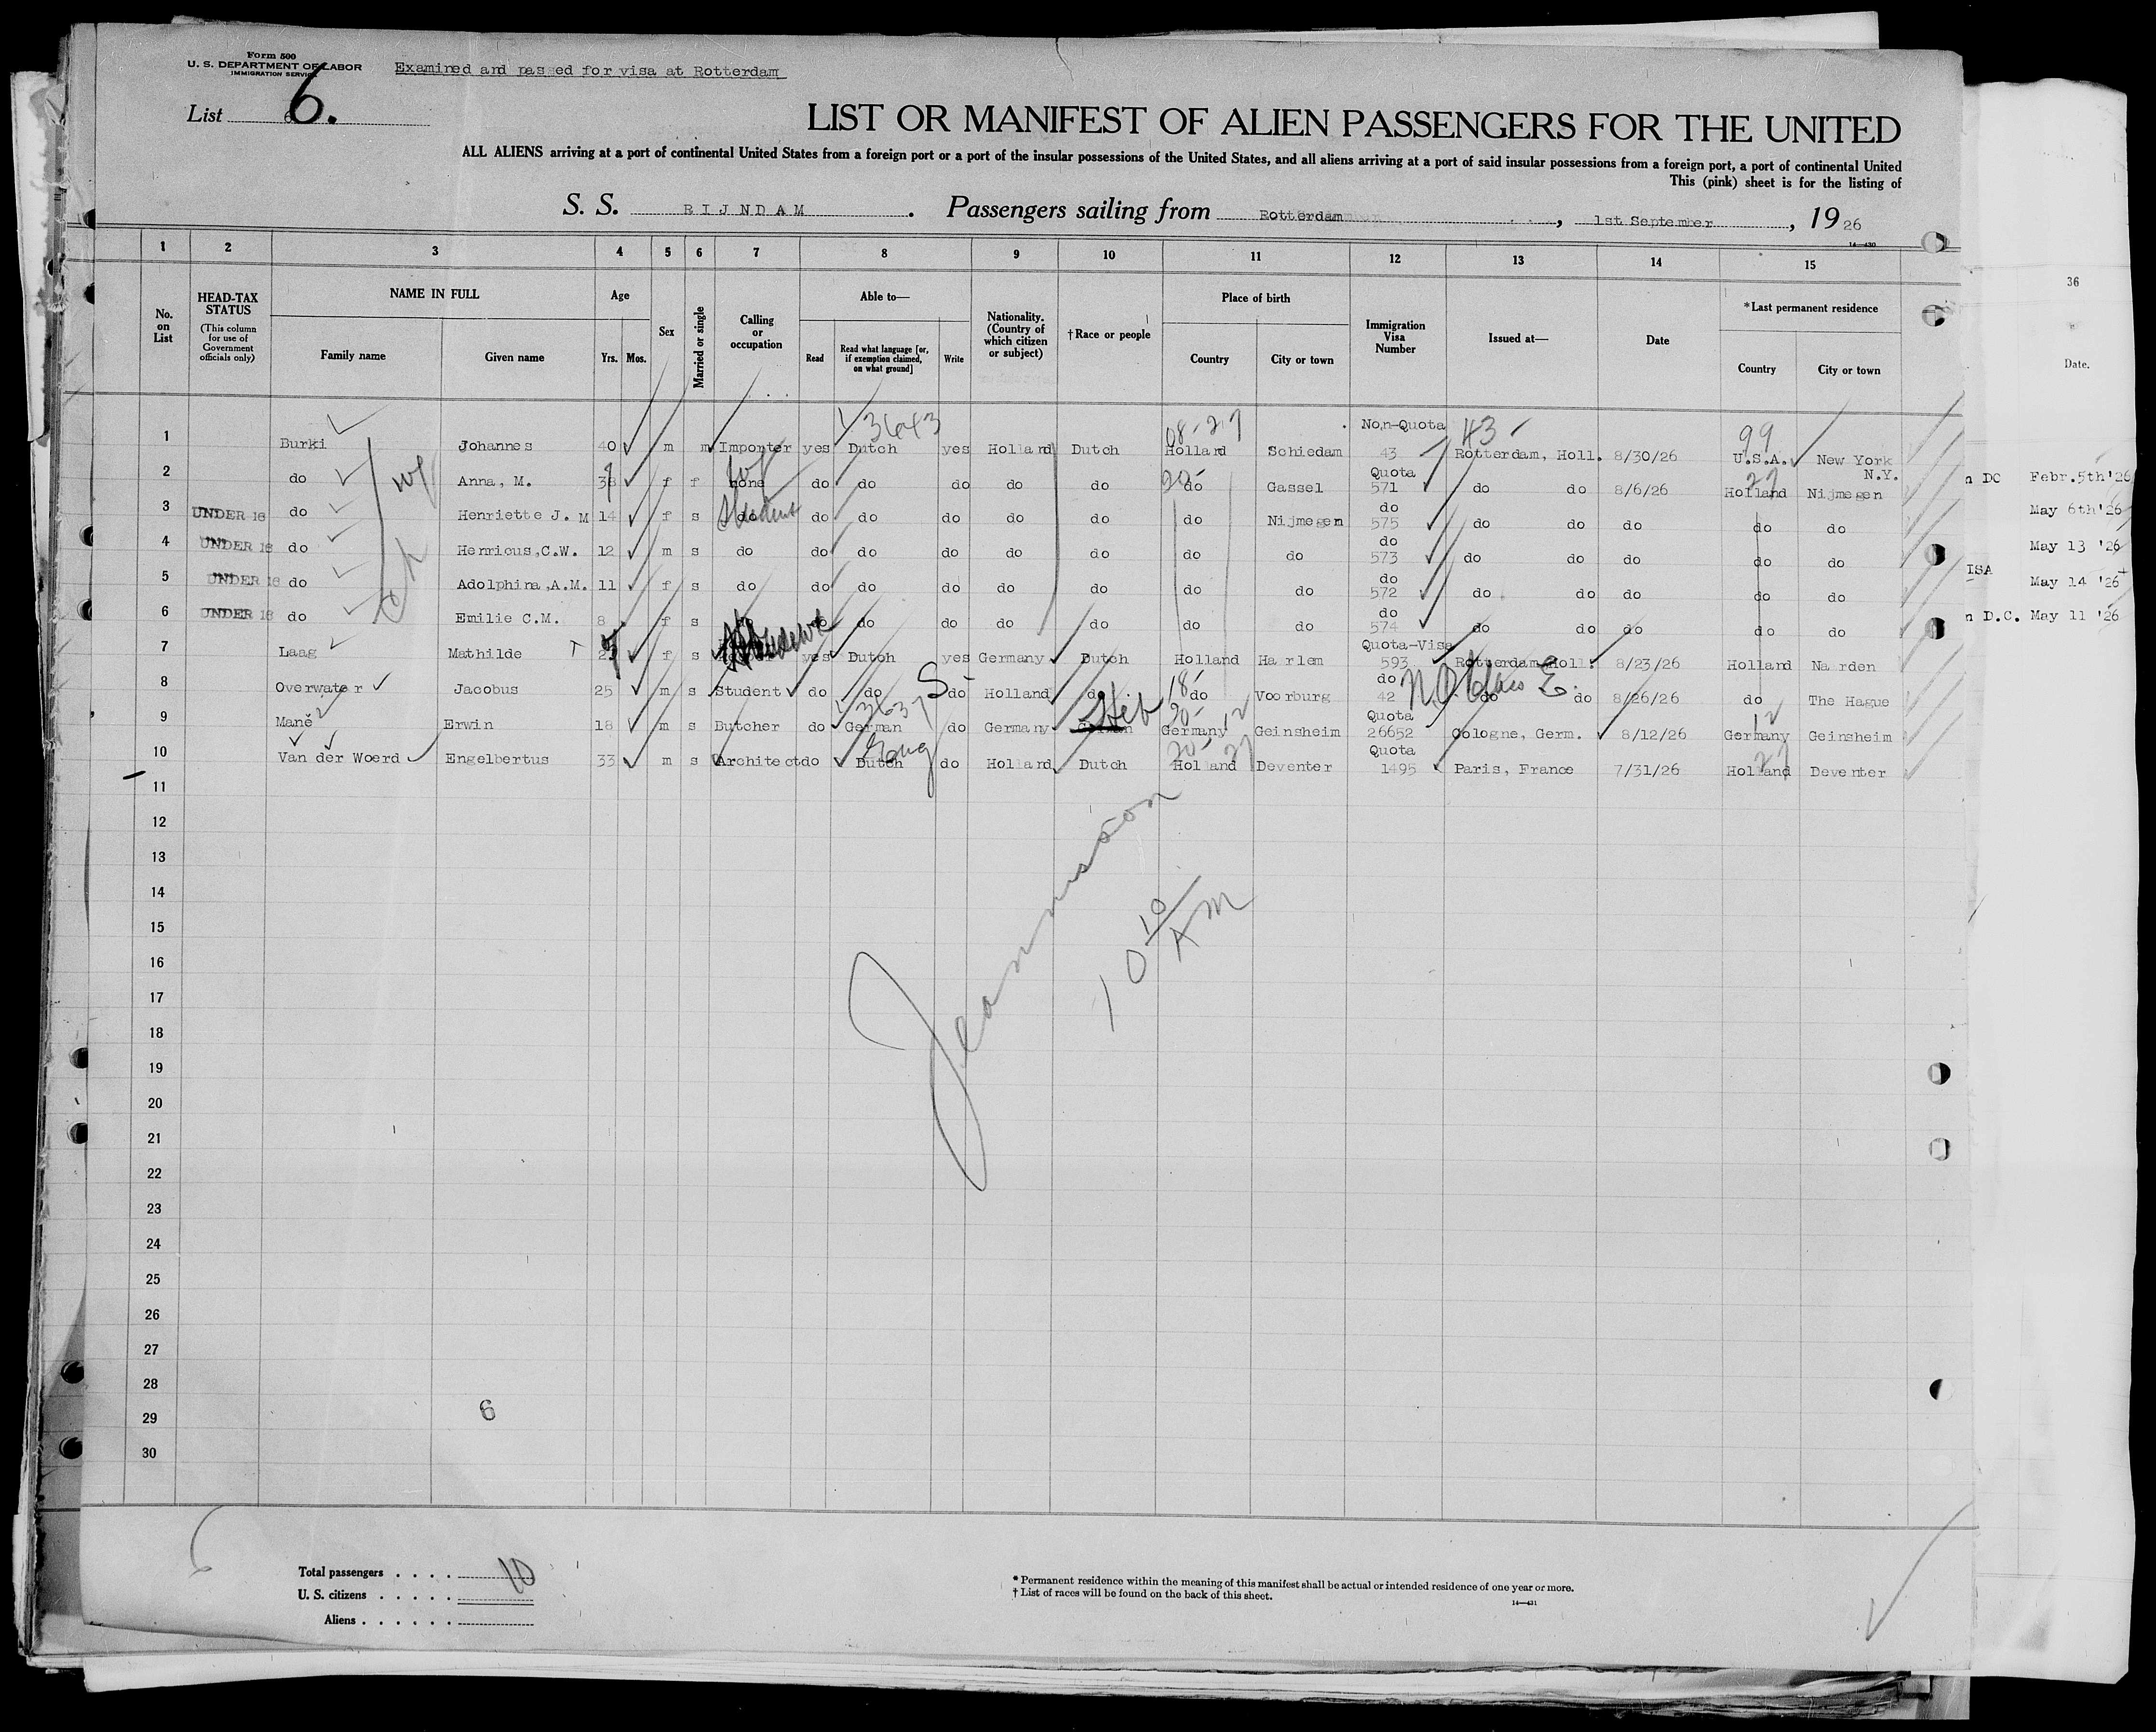 Form 500
U. S. DEPARTMENT OF LABOR
IMMIGRATION SERVICE
Examined and passed for visa at Rotterdam
List 6.
LIST OR MANIFEST OF ALIEN PASSENGERS FOR THE UNITED
ALL ALIENS arriving at a port of continental United States from a foreign port or a port of the insular possessions of the United States, and all aliens arriving at a port of said insular possessions from a foreign port, a port of continental United
This (pink) sheet is for the listing of
S. S. RIJNDAM. Passengers sailing from Rotterdam, 1st September, 1926
14—430
1 2 3 4 5 6 7 8 9 10 11 12 13 14 15
36
No. on List
HEAD-TAX STATUS (This column for use of Government officials only)
NAME IN FULL
Family name Given name
Age
Yrs. Mos.
Sex
Married or single
Calling or occupation
Able to—
Read Read what language [or, if exemption claimed, on what ground] Write
Nationality. (Country of which citizen or subject)
†Race or people
Place of birth
Country City or town
Immigration Visa Number
Issued at—
Date
*Last permanent residence
Country City or town
Date.
3643 08-27 Non-Quota 43- 99
1 Burki Johannes 40 m m Importer yes Dutch yes Holland Dutch Holland Schiedam 43 Rotterdam, Holl. 8/30/26 U.S.A. New York N.Y.
wf wf 20- Quota 27
2 do Anna, M. 38 f f none do do do do do do Gassel 571 do do 8/6/26 Holland Nijmegen
Student do
3 UNDER 16 do Henriette J. M 14 f s do do do do do do do Nijmegen 575 do do do do do
do
4 UNDER 16 do Henricus,C.W. 12 m s do do do do do do do do 573 do do do do do
do
5 UNDER 16 do Adolphina,A.M. 11 f s do do do do do do do do 572 do do do do do
ch do
6 UNDER 16 do Emilie C.M. 8 f s do do do do do do 574 do do do do do
Student Quota-Visa
7 Laag Mathilde f s yes Dutch yes Germany Dutch Holland Haarlem 593 Rotterdam Holl. 8/23/26 Holland Naarden
S- 18- do
8 Overwater Jacobus 25 m s Student do do do Holland do Voorburg 42 do do 8/26/26 do The Hague
3637 Heb 20- 12 Quota 12
9 Manĕ Erwin 18 m s Butcher do German do Germany German Germany Geinsheim 26652 Cologne, Germ. 8/12/26 Germany Geinsheim
Eng 20- 27 Quota 27
10 Van der Woerd Engelbertus 33 m s Architect do Dutch do Holland Dutch Holland Deventer 1495 Paris, France 7/31/26 Holland Deventer
DC Febr.5th'26
May 6th'26
May 13 '26
ISA
May 14 '26
D.C. May 11 '26
11
12
13
14
15
16
17
18
19
20
21
22
23
24
25
26
27
28
29
30
10 10 AM
6
Total passengers . . . . 10
U. S. citizens . . . . .
Aliens . . . . . .
* Permanent residence within the meaning of this manifest shall be actual or intended residence of one year or more.
† List of races will be found on the back of this sheet.
14—431